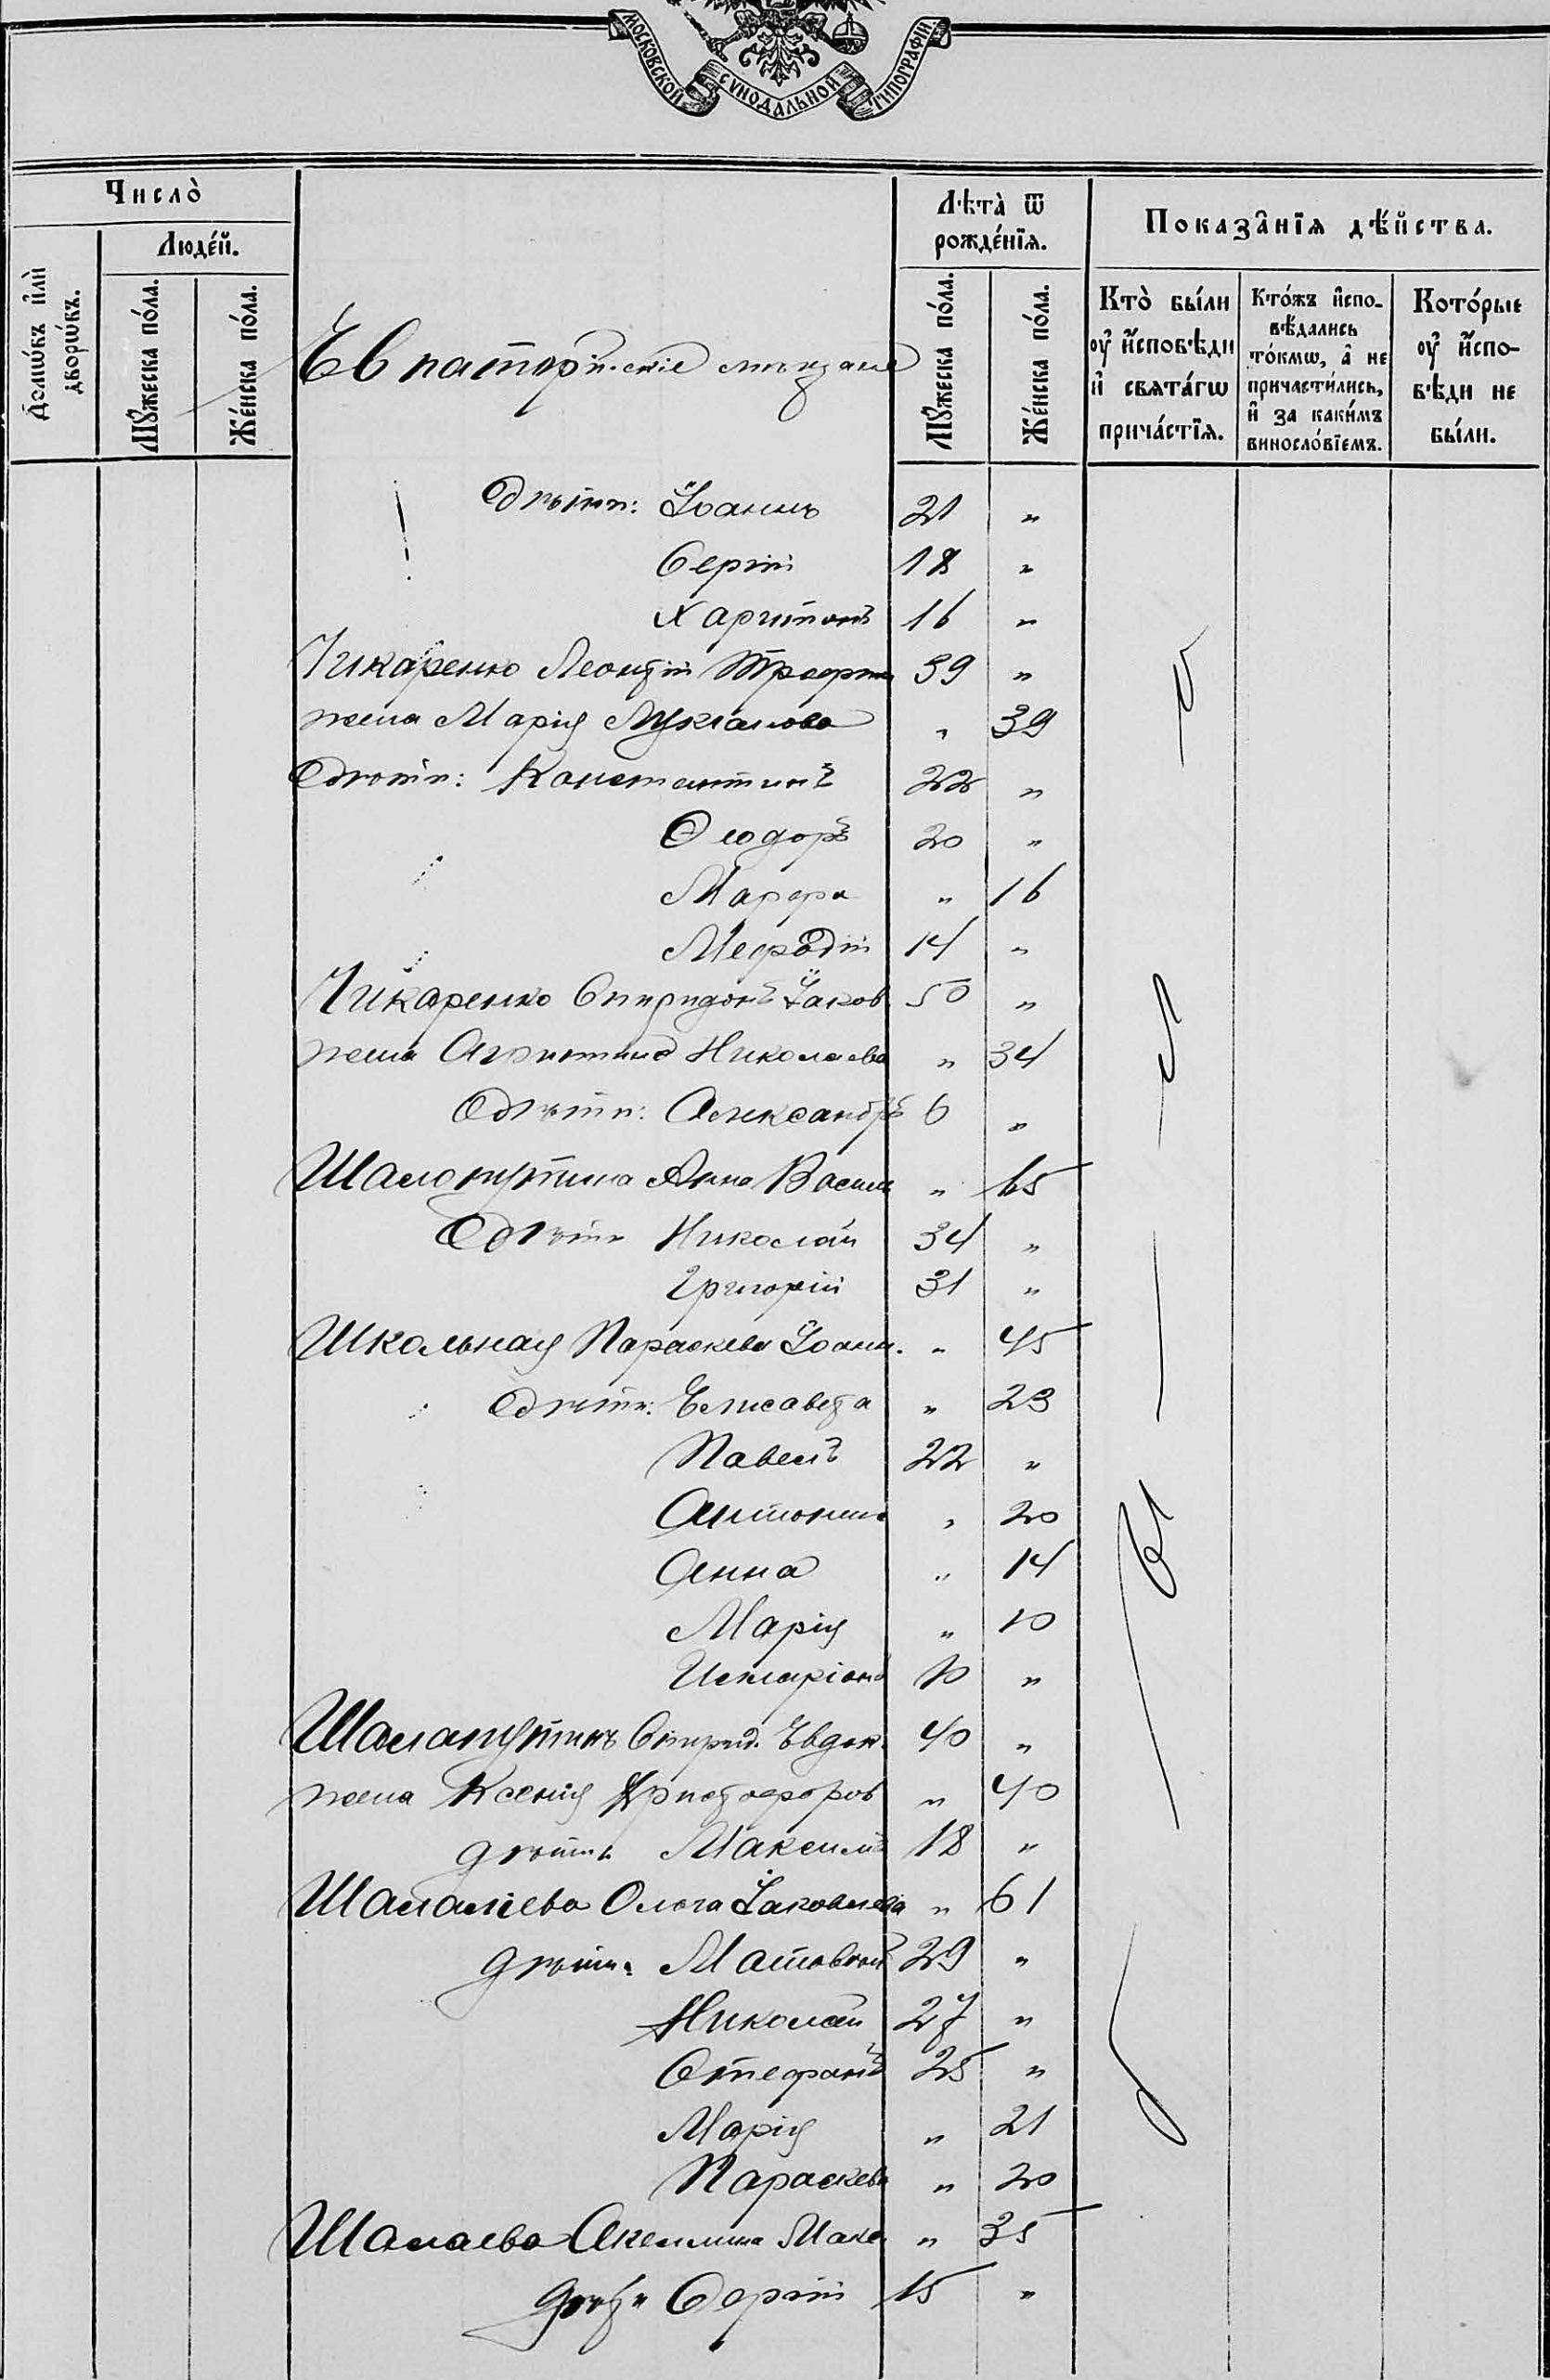 МОСКОВСКОЙ СѴНОДАЛЬНОЙ ТИПОГРАФІИ.
Число̀
Людéй.
Домѡ́въ и҆лѝ дворѡ́въ.
Мꙋ́жеска по́ла.
Же́нска по́ла.
Евпаторійскіе мѣщане
Лѣта̀ ѿ рожде́нїѧ.
Мꙋ́жеска по́ла.
Же́нска по́ла.
Показа̑нїѧ дѣ́йства.
Кто̀ бы́ли оу҆ и҆сповѣди и҆ свѧта́гѡ прича́стїѧ.
Кто́жъ и҆спо-вѣ́дались то́кмѡ, а҆ не причасти́лись, и҆ за каки́мъ винослóвїемъ.
Кото́рые оу҆ и҆спо-вѣди не бы́ли.
Дѣти: Іоаннъ 21 "
Сергій 18 "
Харитонъ 16 "
Чикаренко Леонтій Трофим 39 "
жена Марія Лукіанова " 39
Дѣти: Константинъ 22 "
Ѳеодоръ 20 "
Марфа " 16
Меѳодій 14 "
Чикаренко Спиридонъ Іаков 50 "
жена Агрипина Николаева " 34
Дѣти: Александръ 6 "
Шалопутина Анна Васил " 65
Дѣти Николай 34 "
Григорій 31 "
Школьная Параскева Іоанн. " 45
Дѣти: Елисавета " 23
Павелъ 22 "
Антонина " 20
Анна " 14
Марія " 10
Иларіонъ 10 "
Шалапутинъ Спирид. Евдок. 40 "
жена Ксенія Христофоров " 40
дѣти Максимъ 18 "
Шалаліева Ольга Іаковлева " 61
дѣти Матовій 29 "
Николай 27 "
Стефанъ 25 "
Марія " 21
Параскева " 20
Шалаева Акилина Макс " 35
дѣти Сергій 15 "